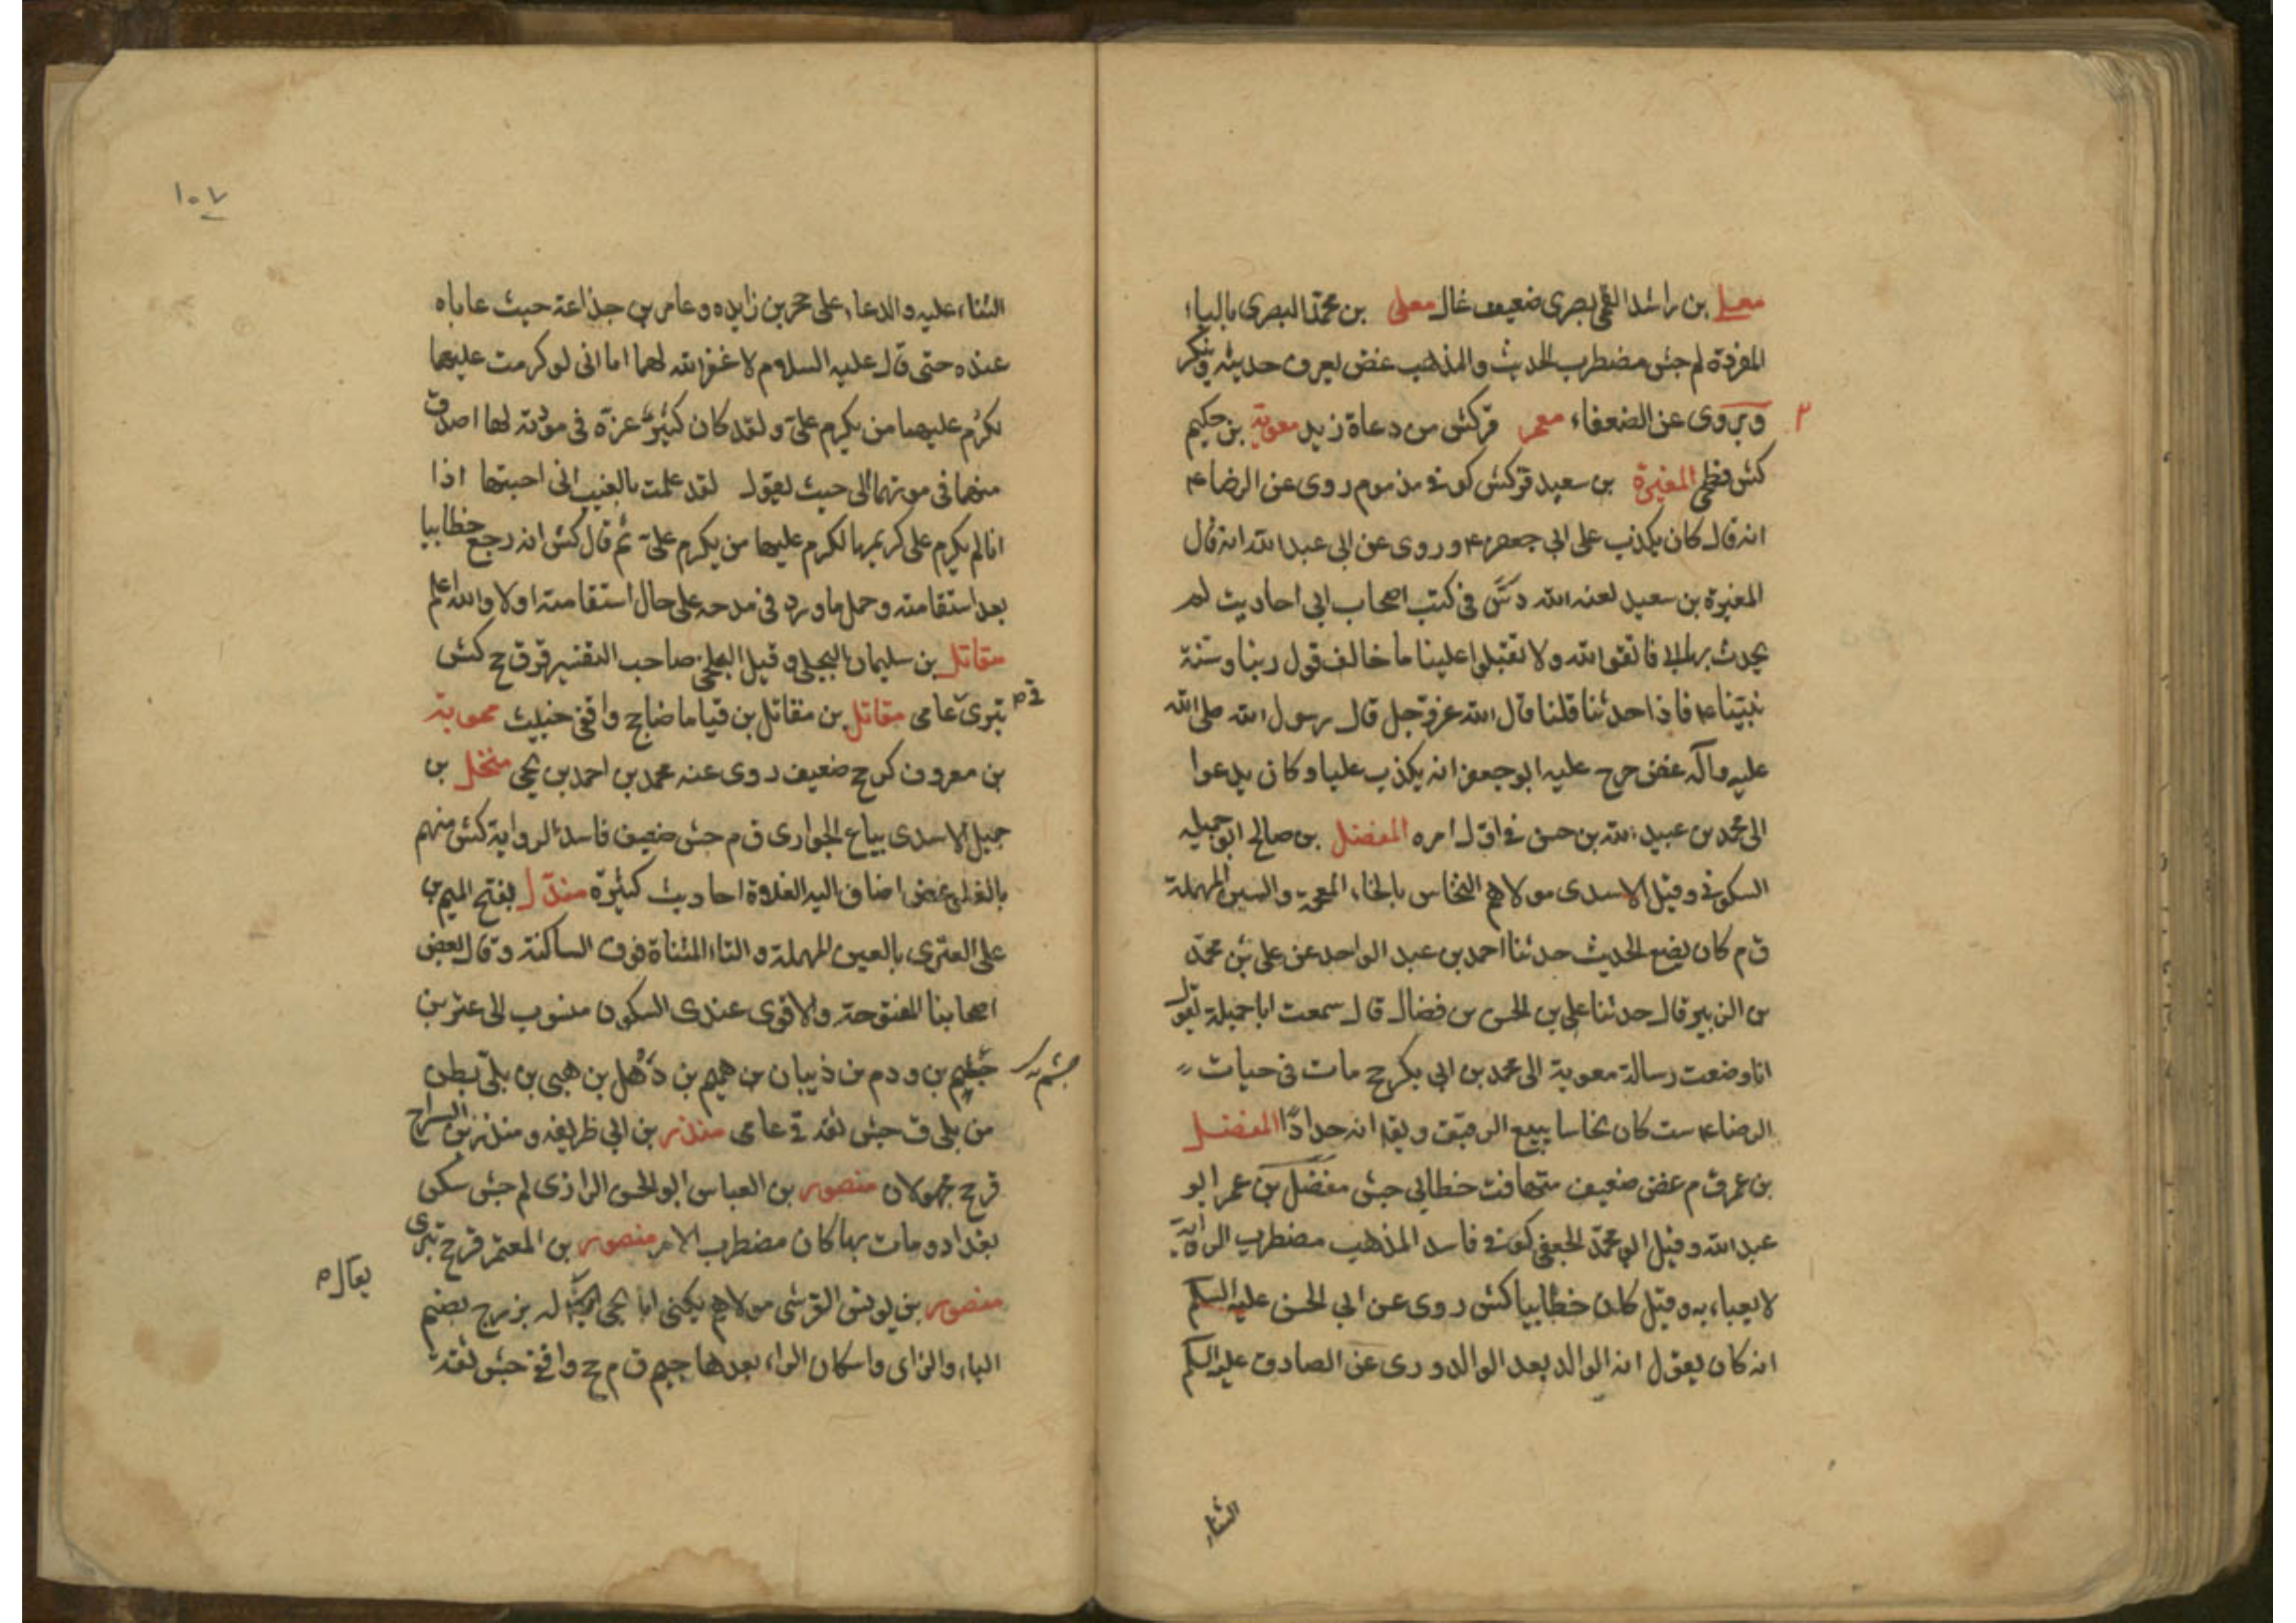 معلى بن راشد القمى بصرى ضعيف غال معلى بن محمد البصرى بالباء
المفردة لم جش مضطرب الحديث والمذهب غض يعرف حديثه وينكر
ويروى عن الضعفاء معمر قر كش من دعاة زيد معوية بن حكيم
كش فطحى المغيرة بن سعيد قر كش كوفى مذموم روى عن الرضا ع
انه قال كان يكذب على ابى جعفر ع وروى عن ابى عبد الله انه قال
المغيرة بن سعيد لعنه الله دسّ فى كتب اصحاب ابى احاديث لم
يحدث بها ابى فاتقوا الله ولا تقبلوا علينا ما خالف قول ربنا وسنة
نبيّنا ع فاذا حدثنا قلنا قال الله عز وجل قال رسول الله صلى الله
عليه وآله غض خرج عليه ابو جعفر انه يكذب عليا وكان يدعوا
الى محمد بن عبد الله بن حسن فى اول امره المفضل بن صالح ابو جميله
السكونى وقيل الاسدى مولاهم النخاس بالخاء المعجمة والسين المهملة
ق م كان يضع الحديث حدثنا احمد بن عبد الواحد عن على بن محمد
بن الزبير قال حدثنا على بن الحسن بن فضال قال سمعت ابا جميلة يقول
انا وضعت رسالة معوية الى محمد بن ابى بكر ح مات فى حيات
الرضا ع ست كان نخاسا يبيع الرقيق ويقا انه حدادًا المفضل
بن عمر ق م غض ضعيف متهافت خطابى جش مفضل بن عمر ابو
عبد الله وقيل ابو محمد الجعفى كوفى فاسد المذهب مضطرب الرواية
لا يعباء به وقيل كان خطابيا كش روى عن ابى الحسن عليه السلم
انه كان يقول انه الوالد بعد الوالد وروى عن الصادق عليه السلم
الثناء
١٠٧
الثناء عليه والدعاء على حجر بن زايده وعامر بن جذاعة حيث عاباه
عنده حتى قال عليه السلوم لا غفر الله لهما اما انى لو كرمت عليهما
لكرم عليهما من يكرم علىّ ولقد كان كثير عزة فى مودته لها اصدق
منهما فى مودتهما الى حيث يقول لقد علمت بالغيب انى احبتها اذا
انا لم يكرم على كريمها لكرم عليهما من يكرم علىّ ثم قال كش انه رجع خطابيا
بعد استقامته وحمل ما ورد فى مدحه على حال استقامته اولا والله اعلم
مقاتل بن سليمان البجلى وقيل البلخى صاحب التفسير قر ق ح كش
بترىّ عامى مقاتل بن مقاتل بن قياما ضا ج واقفى خبيث معوية
بن معروف كر ح ضعيف روى عنه محمد بن احمد بن يحى منخل بن
جميل الاسدى بياع الجوارى ق م جش ضعيف فاسد الرواية كش متهم
بالغلو غض اضاف اليه الغلاة احاديث كثيرة مندل بفتح الميم بن
على العترى بالعين المهملة والتاء المثناة فوق الساكنة وقال بعض
اصحابنا المفتوحة والاقوى عندى السكون منسوب الى عتر بن
جشم بن ودم بن ذبيان بن هميم بن ذهل بن هبى بن بلى بطن
جشم
من بلى ق جش ثقه قى عامى منذر بن ابى طريفه ومنذر بن السراج
قر ح مجهولان منصور بن العباس ابو الحسن الرازى لم جش سكن
بغداد ومات بها كان مضطرب الامر منصور بن المعتمر قر ح بترى
منصور بن يونس القرشى مولاهم يكنى ابا يحى له بزرج بضم
يقال
الباء والزاى واسكان الراء بعدها جيم ق م ح واقفى جش ثقة